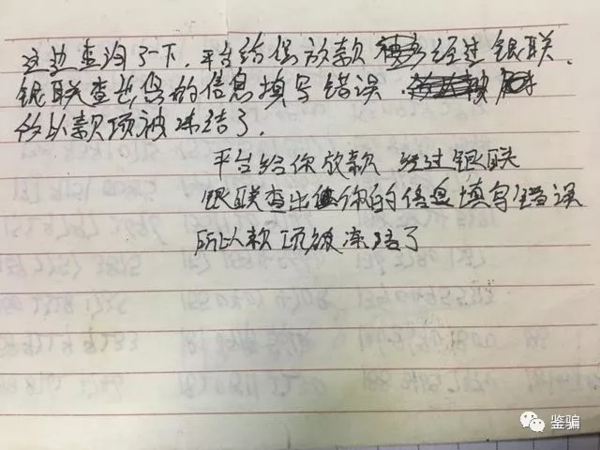 这边查询了一下,平台给您放款 经过银联、
银联查出您的信息填写错误.
所以款项被冻结了.
平台给你放款 经过银联
银联查出你的信息填写错误
所以款项被冻结了
鉴骗